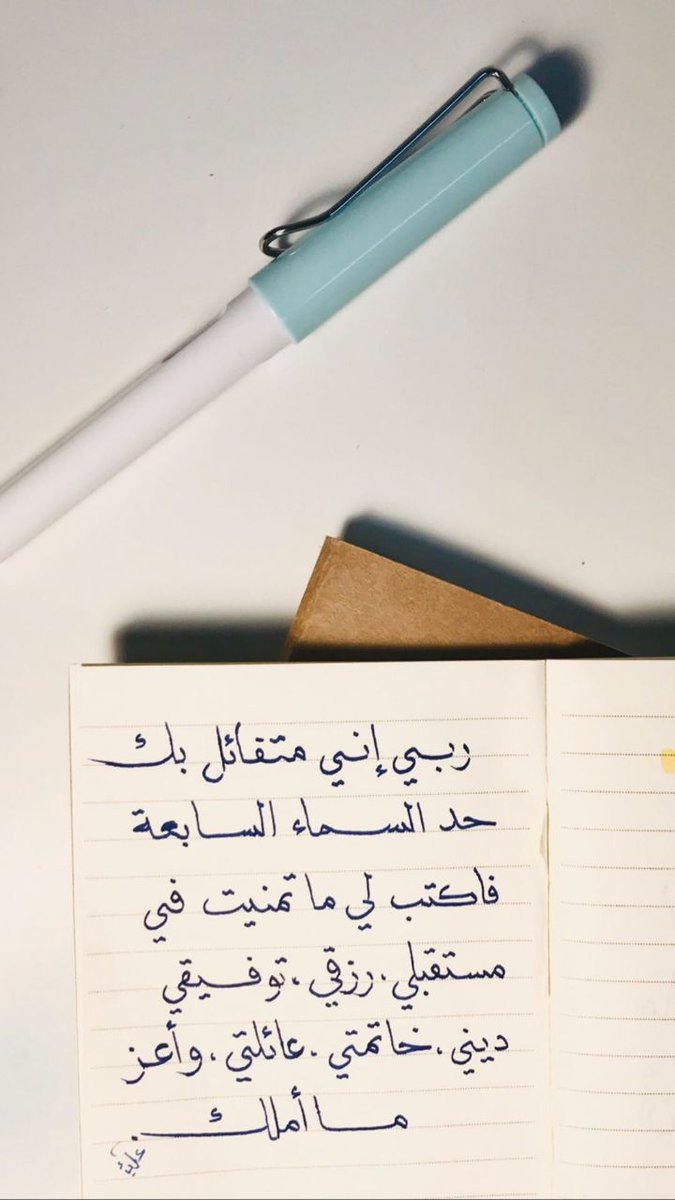 ربي إني متفائل بك
حد السماء السابعة
فاكتب لي ما تمنيت في
مستقبلي، رزقي، توفيقي
ديني، خاتمتي، عائلتي، وأعز
ما أملك.